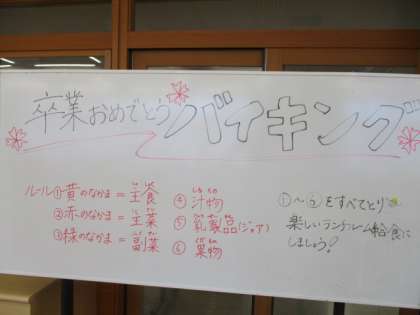 卒業おめでとうバイキング
ルール①黄のなかま=主食
②赤のなかま=主菜
③緑のなかま=副菜
④汁物
⑤乳製品(ジョア)
⑥果物
①~⑥をすべてとり
楽しいランチルーム給食に
しましょう!